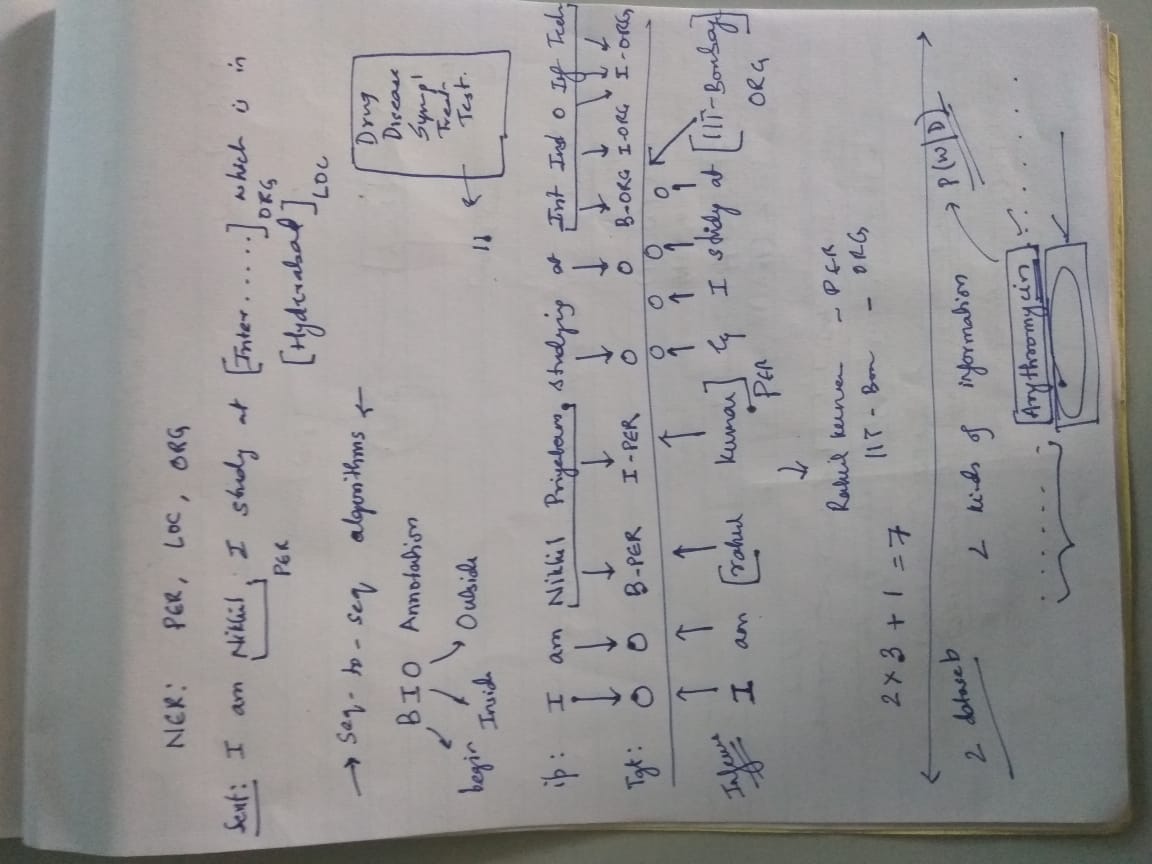 NER: PER, LOC, ORG
Sent: I am [Nikhil], I study at [Inter.....] which is in
PER ORG
[Hyderabad]
LOC
→ Seq-to-seq algorithms ←
BIO Annotation
begin Inside Outside
Drug
Disease
Symp'
Treat.
Test.
ip: I am Nikhil Priyatam, studying at Int Inst O If Tech
Tgt: O O B-PER I-PER O O B-ORG I-ORG I-ORG
O O O O O
Infer I am [rahul kumar] & I study at [IIT-Bombay]
PER ORG
Rahul kumar - PER
IIT-Bom - ORG
2 x 3 + 1 = 7
2 datasets 2 kinds of information → P(W|D)
..... [Arythromycin] .....